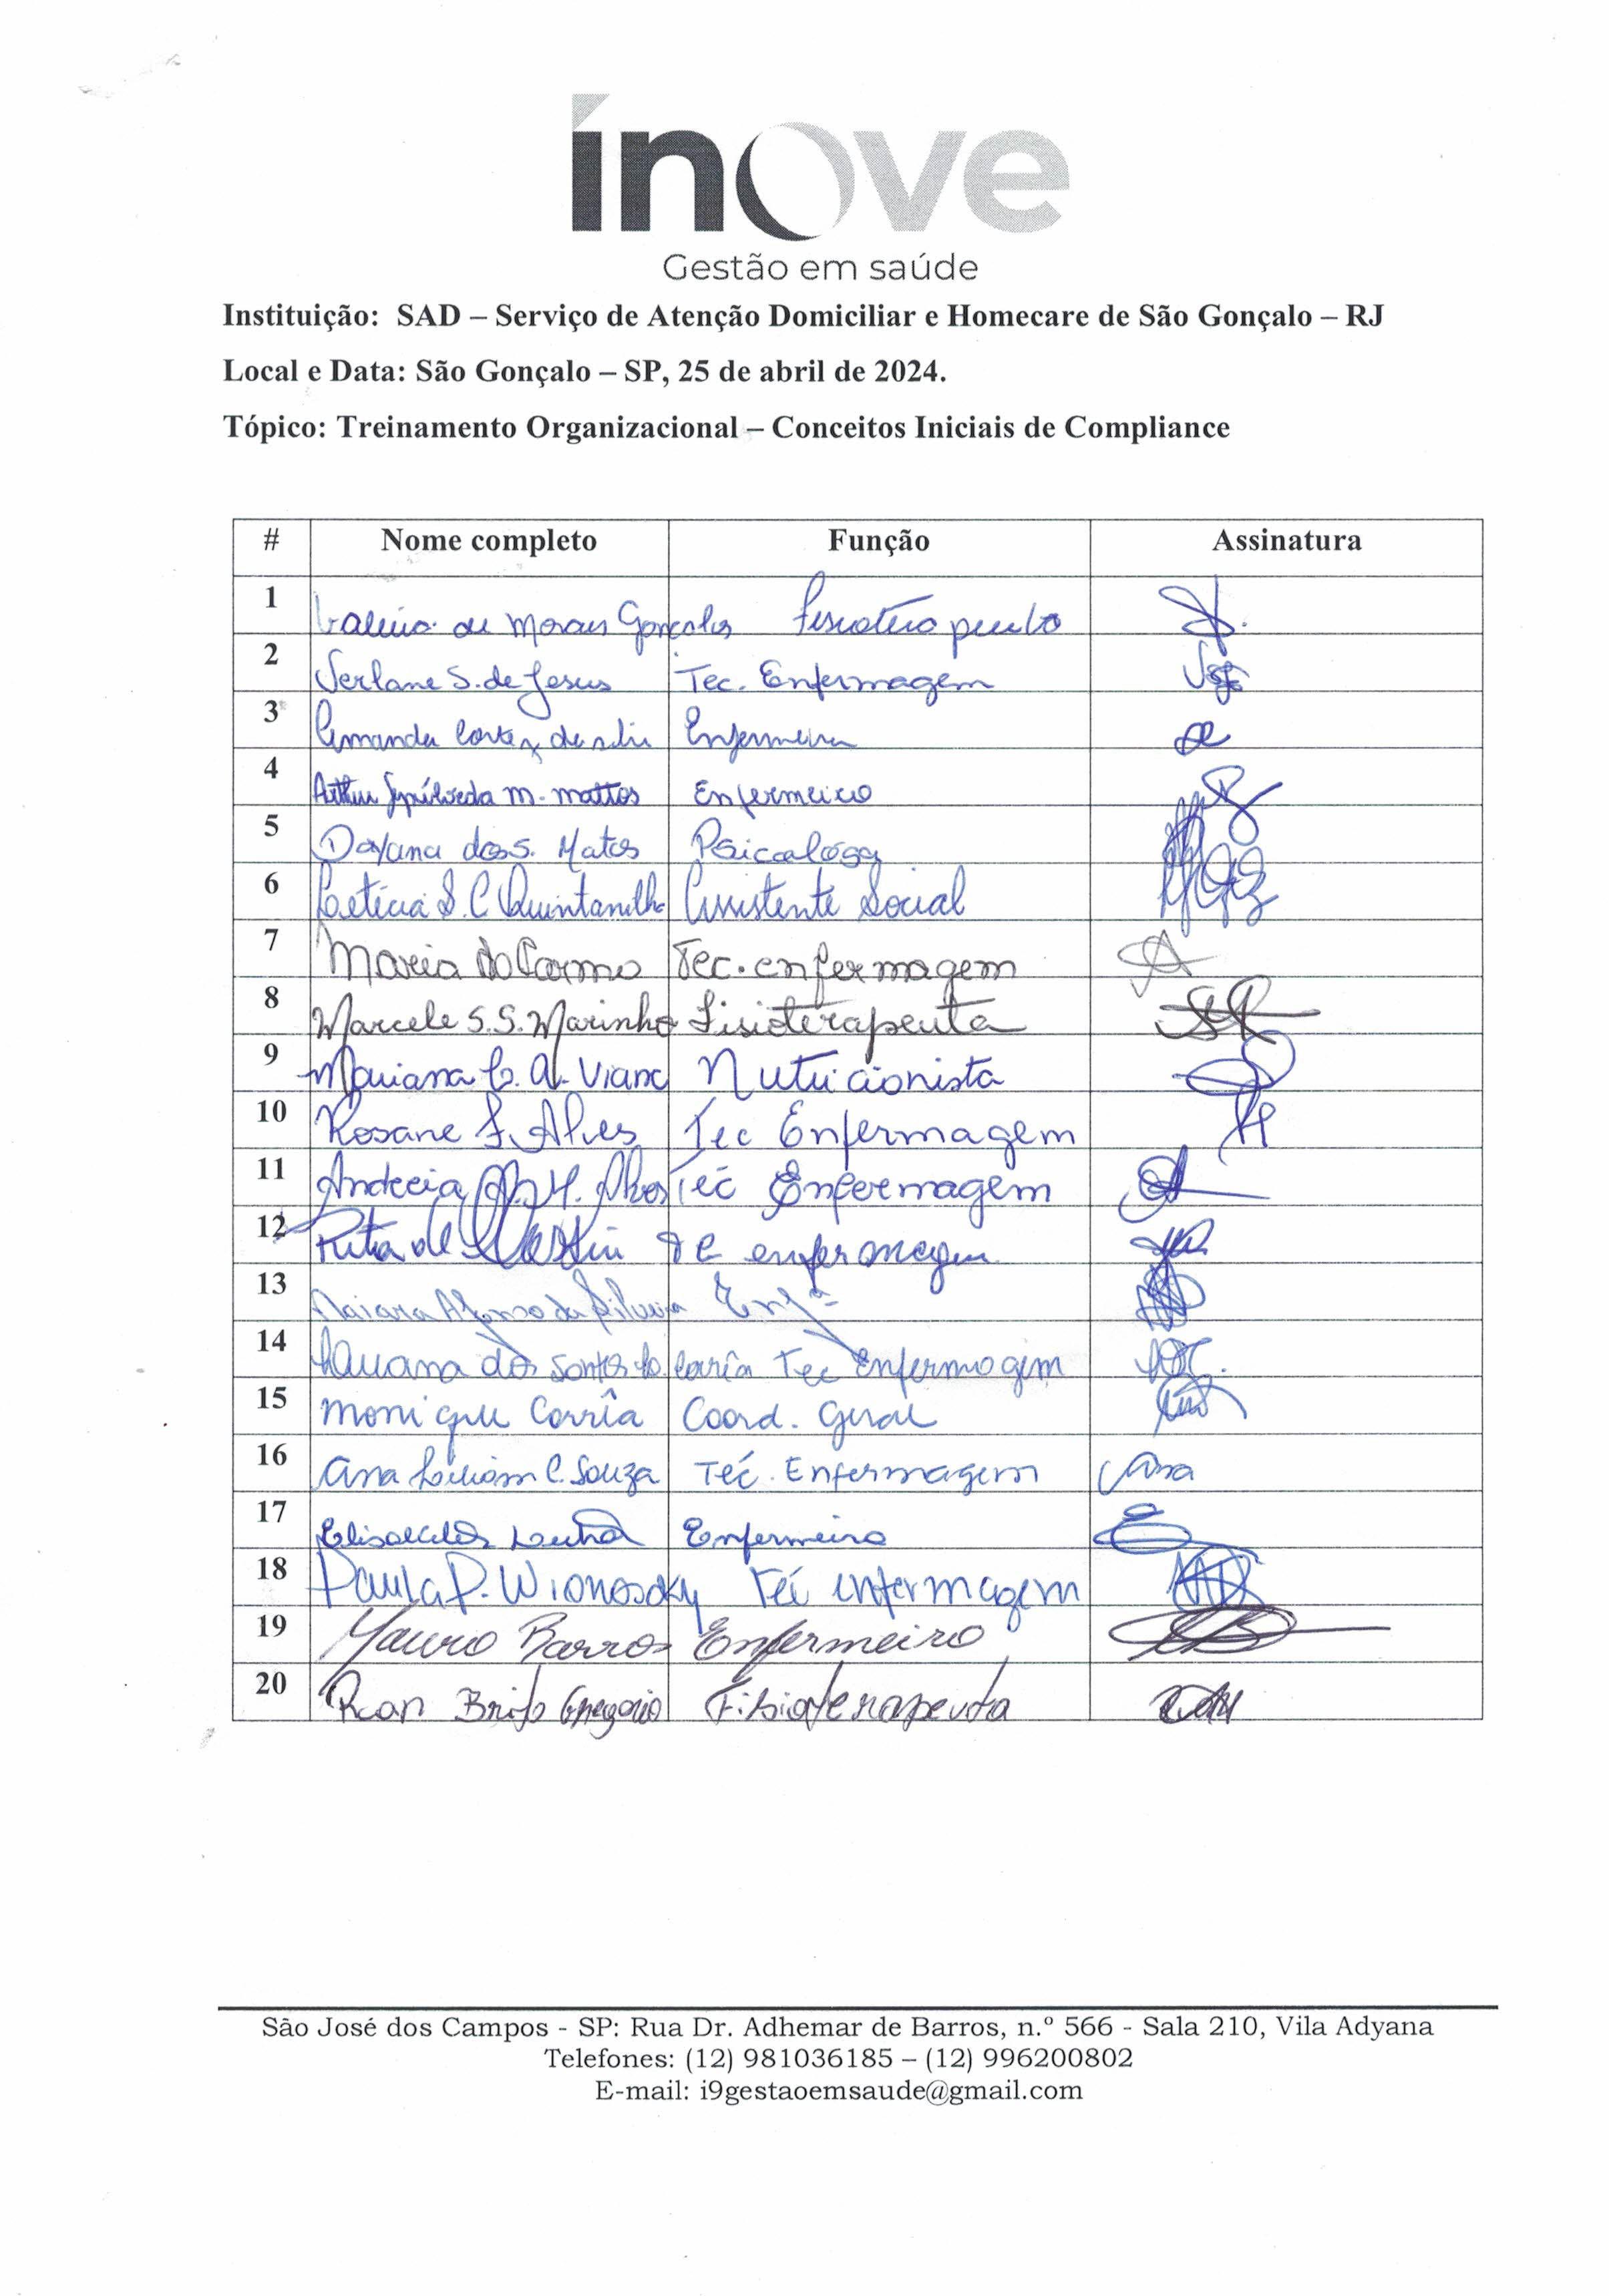 inove
Gestão em saúde
Instituição: SAD – Serviço de Atenção Domiciliar e Homecare de São Gonçalo – RJ
Local e Data: São Gonçalo – SP, 25 de abril de 2024.
Tópico: Treinamento Organizacional – Conceitos Iniciais de Compliance
# Nome completo Função Assinatura
1 de Morais Gonçalves Fisioterapeuta
2 S. de Jesus Tec. Enfermagem
3 Amanda Cortez da Enfermeira
4 Arthur Sepúlveda M. Mattos Enfermeiro
5 Dayana dos S. Matos Psicologa
6 Letícia S. C. Quintanilha Assistente Social
7 Maria do Carmo Tec. enfermagem
8 Marcele S.S. Marinho Fisioterapeuta
9 Mariana C. A. Viana Nutricionista
10 Rosane F. Alves Tec Enfermagem
11 Andreia M. Alves Tec Enfermagem
12 Rita de enfermagem
13 Naiara Afonso da Silveira Enfª
14 dos Santos Tec Enfermagem
15 Monique Corrêa Coord. Geral
16 Ana C. Souza Téc. Enfermagem Ana
17 Enfermeira
18 Paula P. Wionoscky Téc enfermagem
19 Mauro Barros Enfermeiro
20 Brito Gregorio Fisioterapeuta
São José dos Campos - SP: Rua Dr. Adhemar de Barros, n.º 566 - Sala 210, Vila Adyana
Telefones: (12) 981036185 – (12) 996200802
E-mail: i9gestaoemsaude@gmail.com